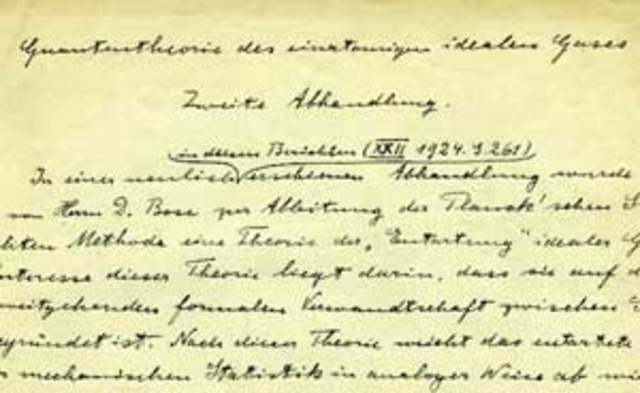 Quantentheorie des einatomigen idealen Gases
Zweite Abhandlung.
in diesen Berichten (XXII 1924. S. 261)
In einer neulich erschienen Abhandlung wurde
von Herrn D. Bose zur Ableitung der Planck'schen
Methode eine Theorie der „Entartung" idealer
Interesse dieser Theorie liegt darin, dass sie auf
weitgehenden formalen Verwandtschaft zwischen
egründet ist. Nach dieser Theorie weicht das entartete
mechanischen Statistik in analoger Weise ab wi